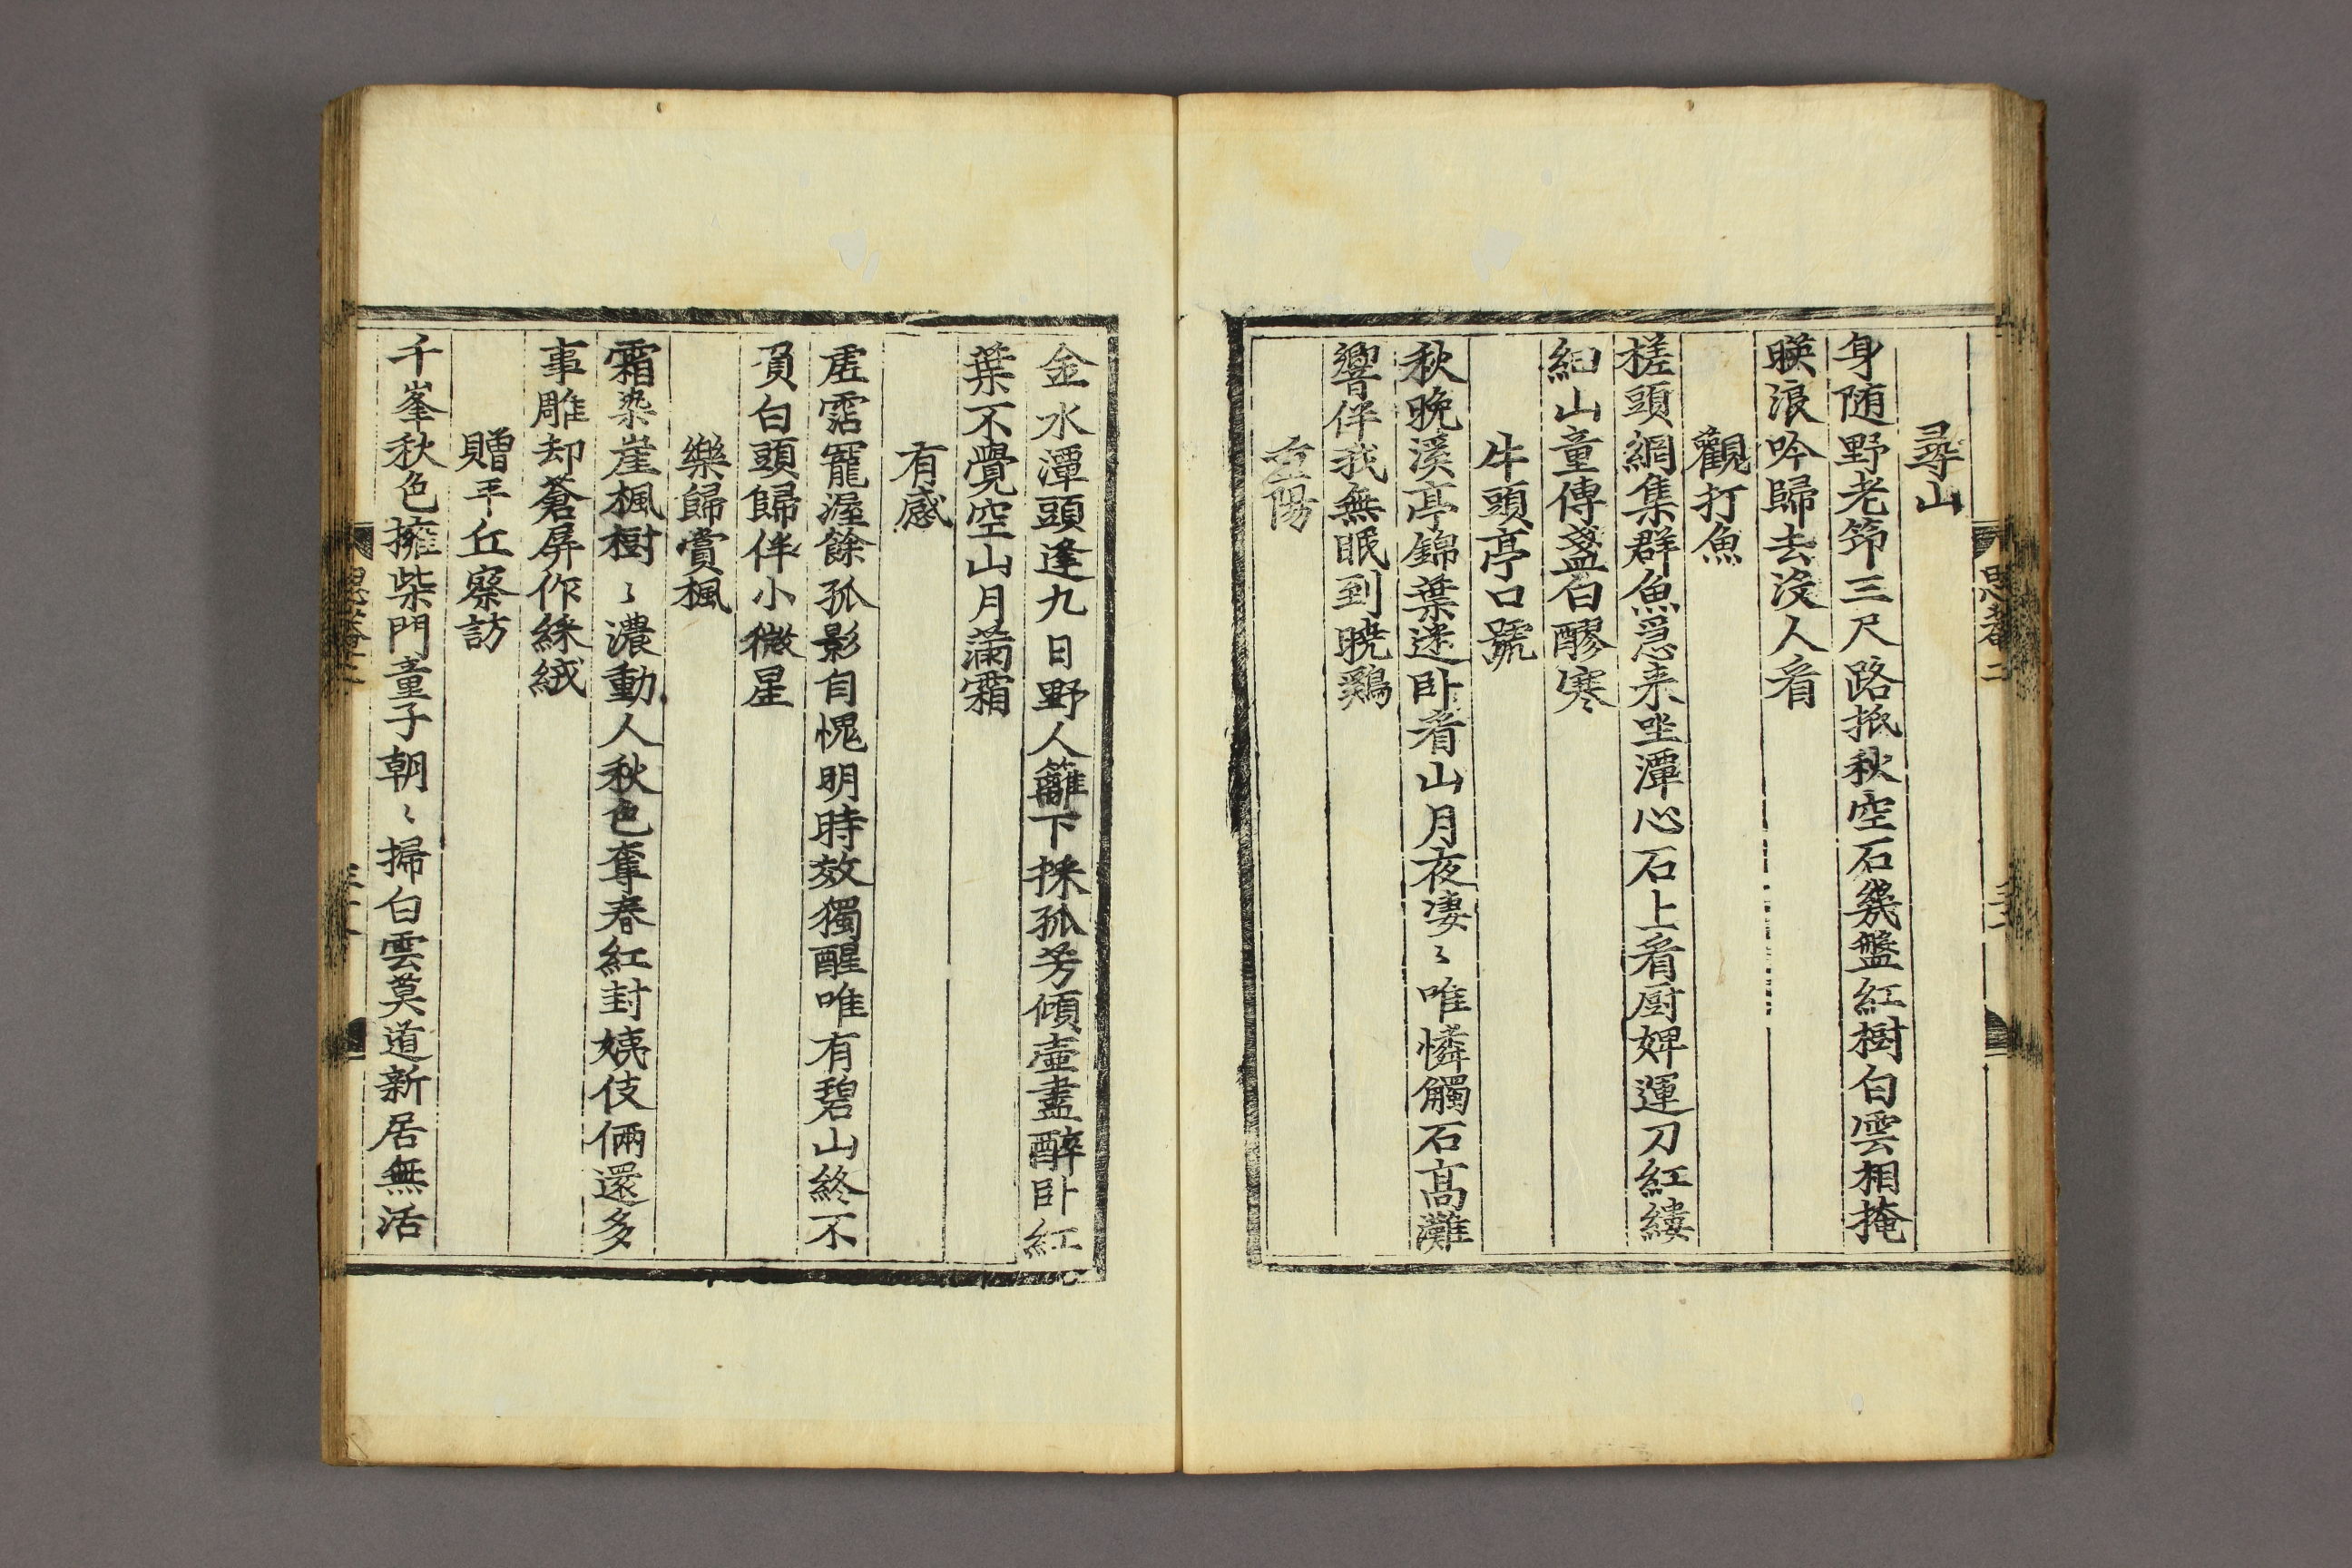 尋山
身随野老笻三尺路抵秋空石幾盤紅樹白雲相掩
暎浪吟歸去没人看
觀打魚
槎頭網集群魚急来坐潭心石上看厨婢運刀紅縷
細山童傳盞白醪寒
牛頭亭口號
秋晚溪亭錦葉迷卧看山月夜凄〻唯憐觸石高灘
響伴我無眠到曉鷄
重陽
金水潭頭逢九日野人籬下採孤芳傾壺盡醉卧紅
葉不覺空山月滿霜
有感
虗霑寵渥餘孤影自愧明時效獨醒唯有碧山終不
負白頭歸伴小微星
樂歸賞楓
霜染崖楓樹〻濃動人秋色奪春紅封姨伎倆還多
事雕却蒼屏作綵絨
贈平丘察訪
千峯秋色擁柴門童子朝〻掃白雲莫道新居無活
思菴二